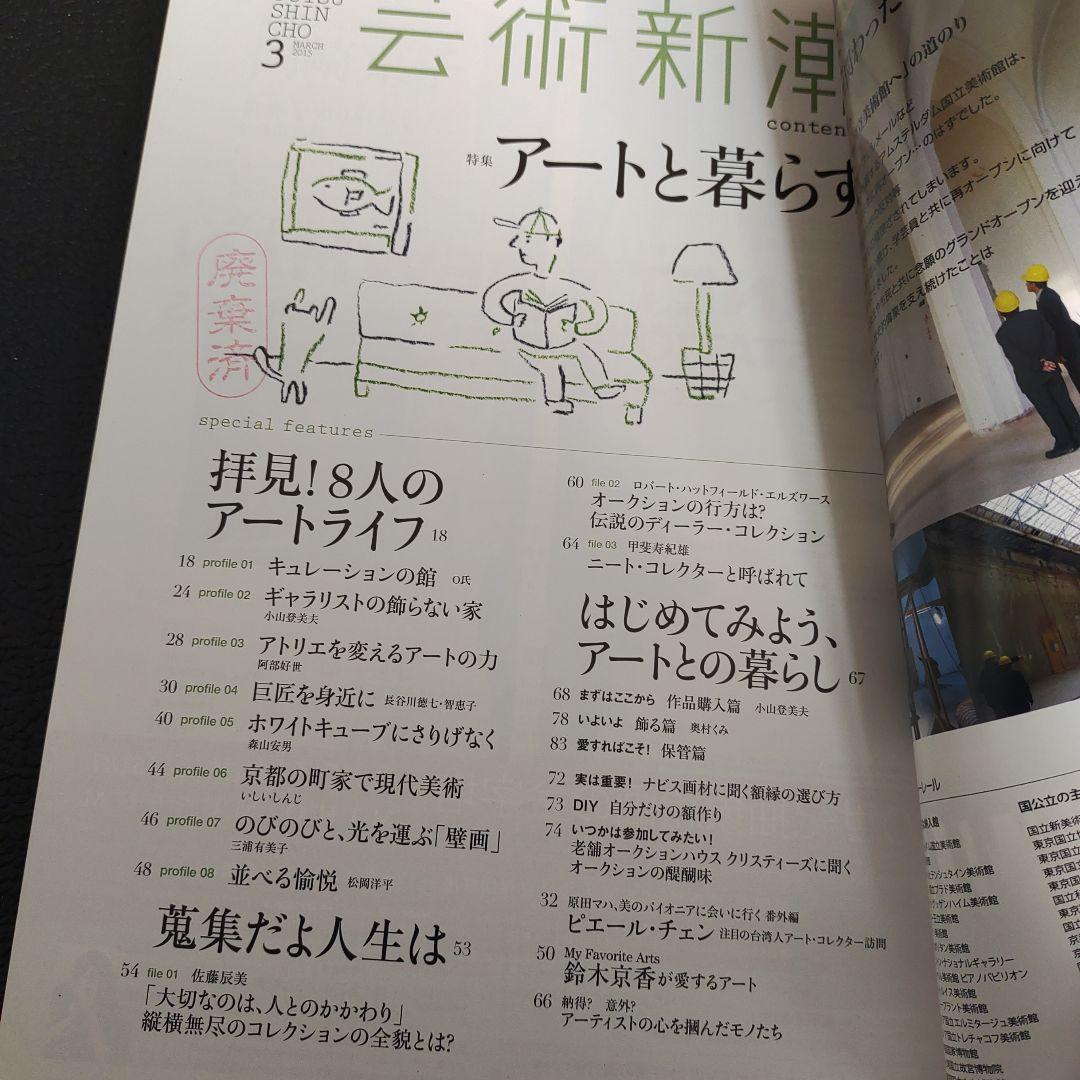 SHIN
CHO
3
MARCH
2015
芸術新潮
conten
特集
アートと暮らす
廃棄済
special features
拝見!8人の
アートライフ 18
18 profile 01 キュレーションの館 O氏
24 profile 02 ギャラリストの飾らない家
小山登美夫
28 profile 03 アトリエを変えるアートの力
阿部好世
30 profile 04 巨匠を身近に 長谷川徳七・智恵子
40 profile 05 ホワイトキューブにさりげなく
森山安男
44 profile 06 京都の町家で現代美術
いしいしんじ
46 profile 07 のびのびと、光を運ぶ「壁画」
三浦有美子
48 profile 08 並べる愉悦 松岡洋平
蒐集だよ人生は 53
54 file 01 佐藤辰美
「大切なのは、人とのかかわり」
縦横無尽のコレクションの全貌とは?
60 file 02 ロバート・ハットフィールド・エルズワース
オークションの行方は?
伝説のディーラー・コレクション
64 file 03 甲斐寿紀雄
ニート・コレクターと呼ばれて
はじめてみよう、
アートとの暮らし 67
68 まずはここから 作品購入篇 小山登美夫
78 いよいよ 飾る篇 奥村くみ
83 愛すればこそ! 保管篇
72 実は重要! ナビス画材に聞く額縁の選び方
73 DIY 自分だけの額作り
74 いつかは参加してみたい!
老舗オークションハウス クリスティーズに聞く
オークションの醍醐味
32 原田マハ、美のパイオニアに会いに行く 番外編
ピエール・チェン 注目の台湾人アート・コレクター訪問
50 My Favorite Arts
鈴木京香が愛するアート
66 納得? 意外?
アーティストの心を掴んだモノたち
美術館へ」の道のり
ムステルダム国立美術館は、
オープン…のはずでした。
されてしまいます。
学芸員と共に再オープンに向けて
と共に念願のグランドオープンを迎え
を支え続けたことは
国公立の主
国立新美術
東京国立
国立美術館
テンシュタイン美術館
プラド美術館
グッゲンハイム美術館
ナショナルギャラリー
美術館 ピアノパビリオン
エルミタージュ美術館
トレチャコフ美術館
国家博物館
国立故宮博物院